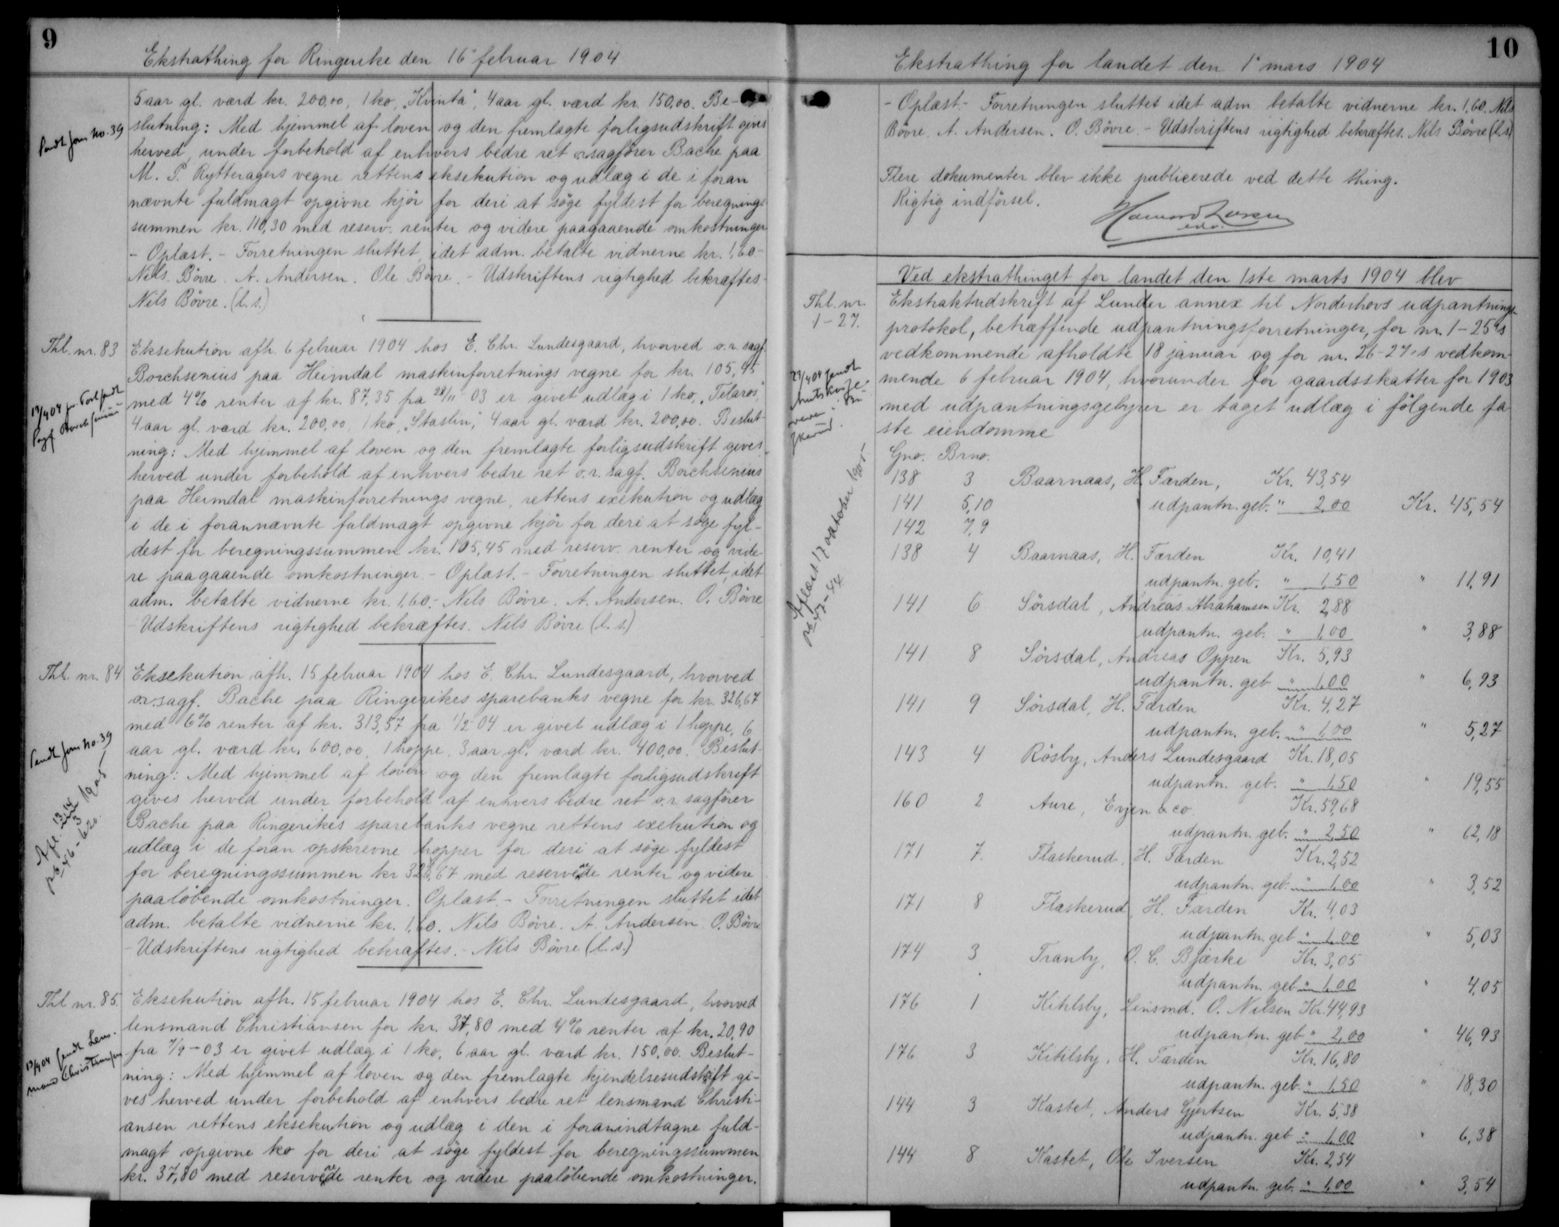 9
Ekstrathing for Ringerike den 16' februar 1904
5 aar gl. værd kr. 200,00, 1 ko, "Kvinta", 4 aar gl. værd kr. 150,00. Be-
slutning: Med hjemmel af loven og den fremlagte forligsudskrift gives
Sendt Jour No. 39
herved under forbehold af enhvers bedre ret o.r. sagfører Bache paa
M. P. Rytteragers vegne rettens eksekution og udlæg i de i foran
nævnte fuldmagt opgivne kjør for deri at søge fyldest for beregnings
summen kr. 110,30 med reserv. renter og videre paagaaende omkostninger
- Oplæst. - Forretningen sluttet, idet adm. betalte vidnerne kr. 1,60-
Nils Bövre. A. Andersen. Ole Bövre. - Udskriftens rigtighed bekræftes-
Nils Bövre. (L.s.)
Thl. nr. 83
Eksekution afh. 6 februar 1904 hos E. Chr. Lundesgaard, hvorved o.r. sagf.
Borchsenius paa Heimdal maskinforretnings vegne for kr. 105,45
med 4% renter af kr. 87,35 fra 28/11 03 er givet udlæg i 1 ko, "Telaros",
4 aar gl. værd kr. 200,00, 1 ko "Staslin", 4 aar gl. værd kr. 200,00. Beslut-
ning: Med hjemmel af loven og den fremlagte forligsudskrift gives
herved under forbehold af enhvers bedre ret o.r. sagf. Borchsenius
paa Heimdal maskinforretnings vegne, rettens exekution og udlæg
i de i forannævnte fuldmagt opgivne kjør for deri at søge fyl-
dest for beregningssummen kr. 105,45 med reserv. renter og vide-
re paagaaende omkostninger - Oplæst. - Forretningen sluttet, idet
adm. betalte vidnerne kr. 1,60.- Nils Bövre. A. Andersen. O. Bövre
- Udskriftens rigtighed bekræftes. Nils Bövre (L.s.)
Thl. nr. 84
Eksekution afh. 15 februar 1904 hos E. Chr. Lundesgaard, hvorved
o.r. sagf. Bache paa Ringerikes sparebanks vegne for kr. 326,67
med 6% renter af kr. 313,57 fra 1/2 04 er givet udlæg i 1 hoppe, 6
Sendt Jour No. 39
aar gl. værd kr. 600,00, 1 hoppe, 3 aar gl. værd kr. 400,00. Beslut-
ning: Med hjemmel af loven og den fremlagte forligsudskrift
gives herved under forbehold af enhvers bedre ret o.r. sagfører
Bache paa Ringerikes sparebanks vegne rettens exekution og
udlæg i de foran opskrevne hopper for deri at søge fyldest
for beregningssummen kr 326,67 med reserverede renter og videre
paaløbende omkostninger. Oplæst. - Forretningen sluttet idet
adm. betalte vidnerne kr. 1,60. Nils Bövre. A. Andersen. O. Bövre
- Udskriftens rigtighed bekræftes. - Nils Bövre (L.s.)
Thl nr. 85.
Eksekution afh. 15 februar 1904 hos E. Chr. Lundesgaard, hvorved
lensmand Christiansen for kr. 37,80 med 4% renter af kr. 20,90
fra 7/9-03 er givet udlæg i 1 ko, 6 aar gl. værd kr. 150,00. Beslut-
ning: Med hjemmel af loven og den fremlagte kjendelsesudskrift gi-
ves herved under forbehold af enhvers bedre ret lensmand Christi-
ansen rettens eksekution og udlæg i den i foranindtagne fuld-
magt opgivne ko for deri at søge fyldest for beregningssummen
kr. 37,80 med reserverede renter og videre paaløbende omkostninger.
10
Ekstrathing for landet den 1' mars 1904
- Oplæst.- Forretningen sluttet idet adm betalte vidnerne kr. 1,60. Nils
Bövre. A. Andersen. O. Bövre. - Udskriftens rigtighed bekræftes. Nils Bövre (L.s)
Flere dokumenter blev ikke publicerede ved dette thing.
Rigtig indførsel.
Ved ekstrathinget for landet den 1ste marts 1904 blev
Thl. nr.
1-27.
Ekstraktudskrift af Lunder annex til Norderhovs udpantnings-
protokol, betræffende udpantningsforretninger, for nr. 1-25's
vedkommende afholdte 18 januar og for nr. 26-27's vedkom-
mende 6 februar 1904, hvorunder for gaardsskatter for 1903
med udpantningsgebyrer er taget udlæg i følgende fa-
ste eiendomme
Aflæst 17 oktober 1905
Gno. Brno.
138 3 Baarnaas, H. Færden, Kr. 43,54
141 5,10 udpantn. geb. " 2,00 Kr. 45,54
142 7,9
138 4 Baarnaas, H. Færden Kr. 10,41
udpantn. geb. " 1,50 " 11,91
141 6 Sörsdal, Andreas Abrahamsen Kr. 2,88
udpantn. geb. " 1,00 " 3,88
141 8 Sörsdal, Andreas Oppen Kr. 5,93
udpantn. geb " 1,00 " 6,93
141 9 Sörsdal, H. Færden Kr. 4,27
udpantn. geb. " 1,00 " 5,27
143 4 Rösby, Anders Lundesgaard Kr. 18,05
udpantn. geb. " 1,50 " 19,55
160 2 Aure, Evjen & co. Kr. 59,68
udpantn. geb. " 2,50 " 62,18
171 7. Flaskerud, H. Færden Kr. 2,52
udpantn. geb. " 1,00 " 3,52
171 8 Flaskerud H. Færden Kr. 4,03
udpantn. geb " 1,00 " 5,03
174 3 Tranby, O. C. Bjærke Kr. 3,05
udpantn. geb " 1,00 " 4,05
176 1 Kitilsby, Lensmd. O. Nilsen Kr. 44,93
udpantn. geb " 2,00 " 46,93
176 3 Kitilsby, H. Færden Kr. 16,80
udpantn. geb. " 1,50 " 18,30
144 3 Kastet, Anders Gjertsen Kr. 5,38
udpantn. geb " 1,00 " 6,38
144 8 Kastet, Ole Iversen Kr. 2,54
udpantn. geb. " 1,00 " 3,54